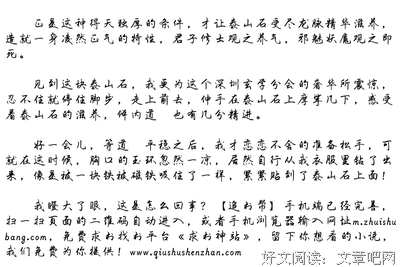 正是这种得天独厚的条件，才让泰山石受尽龙脉精华滋养，
造就一身凛然正气的特性，君子修士观之养气，邪魅妖魔观之即
死。
见到这块泰山石，我更为这个深圳玄学分会的奢华所震惊，
忍不住就停住脚步，走上前去，伸手在泰山石上摩挲几下，感受
着泰山石的滋养，倘内道 也有几分精进。
好一会儿，等道 平稳之后，我才恋恋不舍的准备松手，可
就在这时候，胸口的玉环忽然一凉，居然自行从我衣服里钻了出
来，像是被一块铁被磁铁吸住了一样，紧紧贴到了泰山石上面！
我瞪大了眼，这是怎么回事？【追书帮】手机端已经完善，
扫一扫页面的二维码自动进入，或者手机浏览器输入网址m.zhuishu
bang.com，免费求书找书平台《求书神站》，留下你想看的小说，
我们免费为你提供！www.qiushushenzhan.com
好文阅读：文章吧网